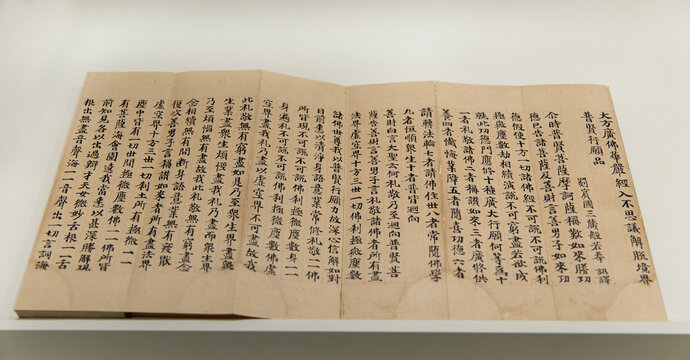 大方廣佛華嚴經入不思議解脫境界
普賢行願品
罽賓國三藏般若奉 詔譯
尒時普賢菩薩摩訶薩稱歎如來勝功
德已告諸菩薩及善財言善男子如來功
德假使十方一切諸佛經不可說不可說佛剎
極微塵數劫相續演說不可窮盡若欲成
就此功德門應修十種廣大行願何等為十
一者礼敬諸佛二者稱讚如來三者廣修供
養四者懺悔業障五者隨喜功德六者
請轉法輪七者請佛住世八者常隨佛學
九者恒順眾生十者普皆迴向
善財白言大聖云何礼敬乃至迴向普賢菩
薩告善財言善男子言礼敬諸佛者所有盡
法界虛空界十方三世一切佛剎極微塵數
諸佛世尊我以普賢行願力故深心信解如對
目前悉以清淨身語意業常修礼敬一一佛
所皆現不可說不可說佛剎極微塵數身一一
身遍礼不可說不可說佛剎極微塵數佛虛
空界盡我礼乃盡以虛空界不可盡故我
此礼敬無有窮盡如是乃至眾生界盡眾
生業盡眾生煩惱盡我礼乃盡而眾生界
乃至煩惱無有盡故我此礼敬無有窮盡念
念相續無有間斷身語意業無有疲厭
復次善男子言稱讚如來者所有盡法界
虛空界十方三世一切剎土所有極微一一
塵中皆有一切世間極微塵數佛一一佛所皆
有菩薩海會圍遶我當悉以甚深勝解現
前知見各以出過辯才天女微妙舌根一一舌
根出無盡音聲海一一音聲出一切言詞海